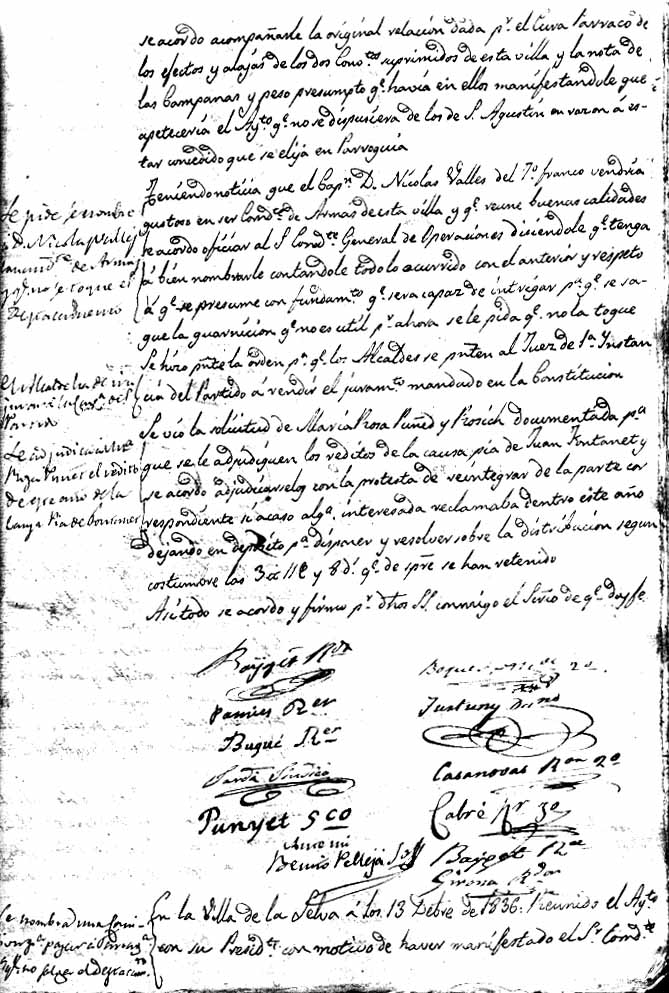 se acordo acompañarle la original relación dada pr. el Cura Parraco de
los efectos y alajas de los dos Convtos suprimidos de esta villa y la nota de
las Campanas y peso presumpto qe. havia en ellos manifestandole que
apeteceria el Aytto qe. no se dispusiera de los de S. Agustin en razon á es-
tar concedido que se elija en Parroquia
Teniendo noticia que el Capn D. Nicolas Valles del 7o franco vendria
gustoso en ser Comdte de Armas de esta villa y qe. reune buenas calidades
se acordo oficiar al Sr Comdte General de Operaciones diciendole qe. tenga
á bien nombrarle contandole todo lo acurrido con el anterior y respeto
á qe. se presume con fundamto qe. sera capaz de intrigar pa. qe. se sa-
que la guarnicion qe. no es util pr. ahora se le pida qe. no la toque
Se hizo pnte la orden pa. qe. los Alcaldes se pnten al Juez de 1a Instan
cia del Partido á rendir el juramto mandado en la Constitucion
Se vio la solicitud de Maria Rosa Puñed y Rosich documentada pa.
que se le adjudiquen los reditos de la causa pia de Juan Fontanet y
se acordo adjudicarselos con la protesta de reintegrar de la parte cor
respondiente si acaso alga. interesada reclamaba dentro este año
dejando en deposito pa. disponer y resolver sobre la distribucion segun
costumbre las 3 # 11 y 8 d. qe. de spre se han retenido
Asi todo se acordo y firmo pr. dhos SS. conmigo el Srio de qe. doy fe
Se pide se nombre
D. Nicolas Valles
Comdte de Armas
y qe. no se toque el
Destacamento
Le adjudica a Ma
Rosa Puñet el redito
de este año de la
Causa Pia de Fontanet
Baget Rdr
Pamies Rer
Bugué Rer
Sardá Sindico
Punyet 5co
Antoni
Benito Pellejá
Casanovas Ror 2o
Cabré Rr 3o
Baget Rr
Girona Rdor
En la Villa de la Selva á los 13 Debre de 1836. Reunido el Aytto
con su Presidte con motivo de haver manifestado el Sr. Comdte
Se nombra una Comi-